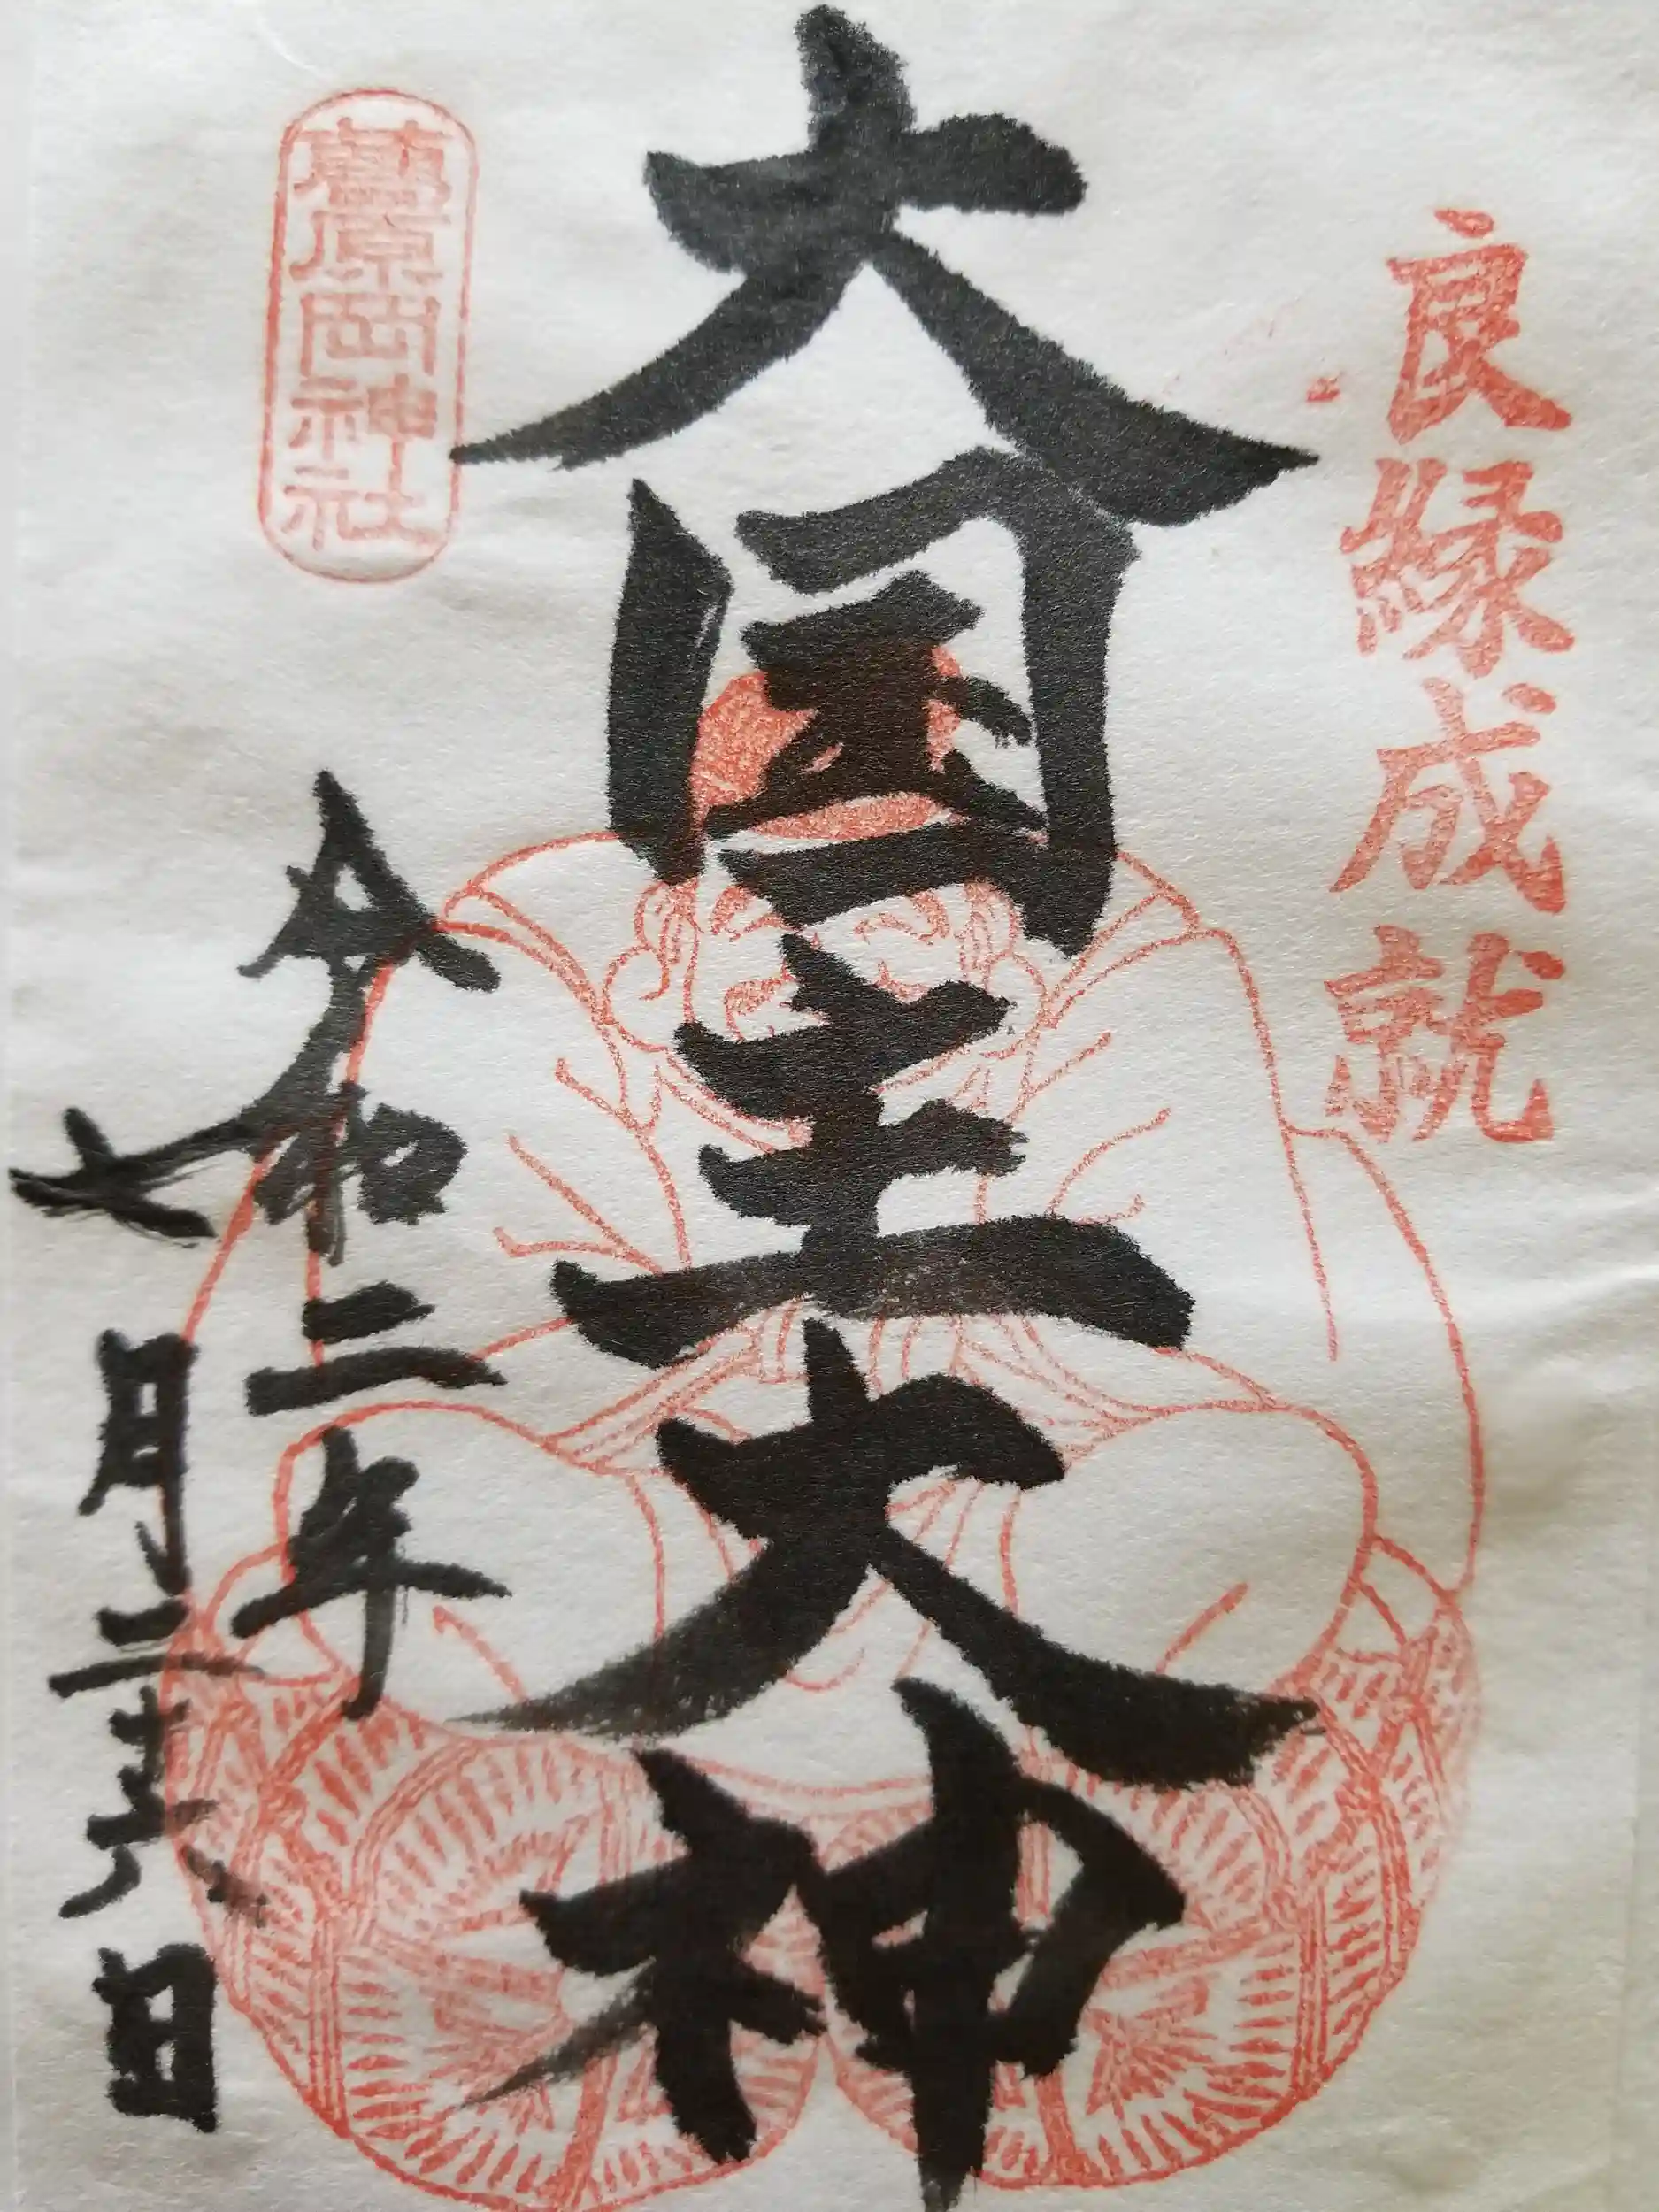 良縁成就
大国主大神
葛原岡神社
令和二年
七月二十六日